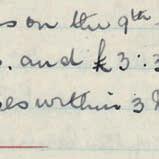 s on the 9th
. and £3:3
es within 3